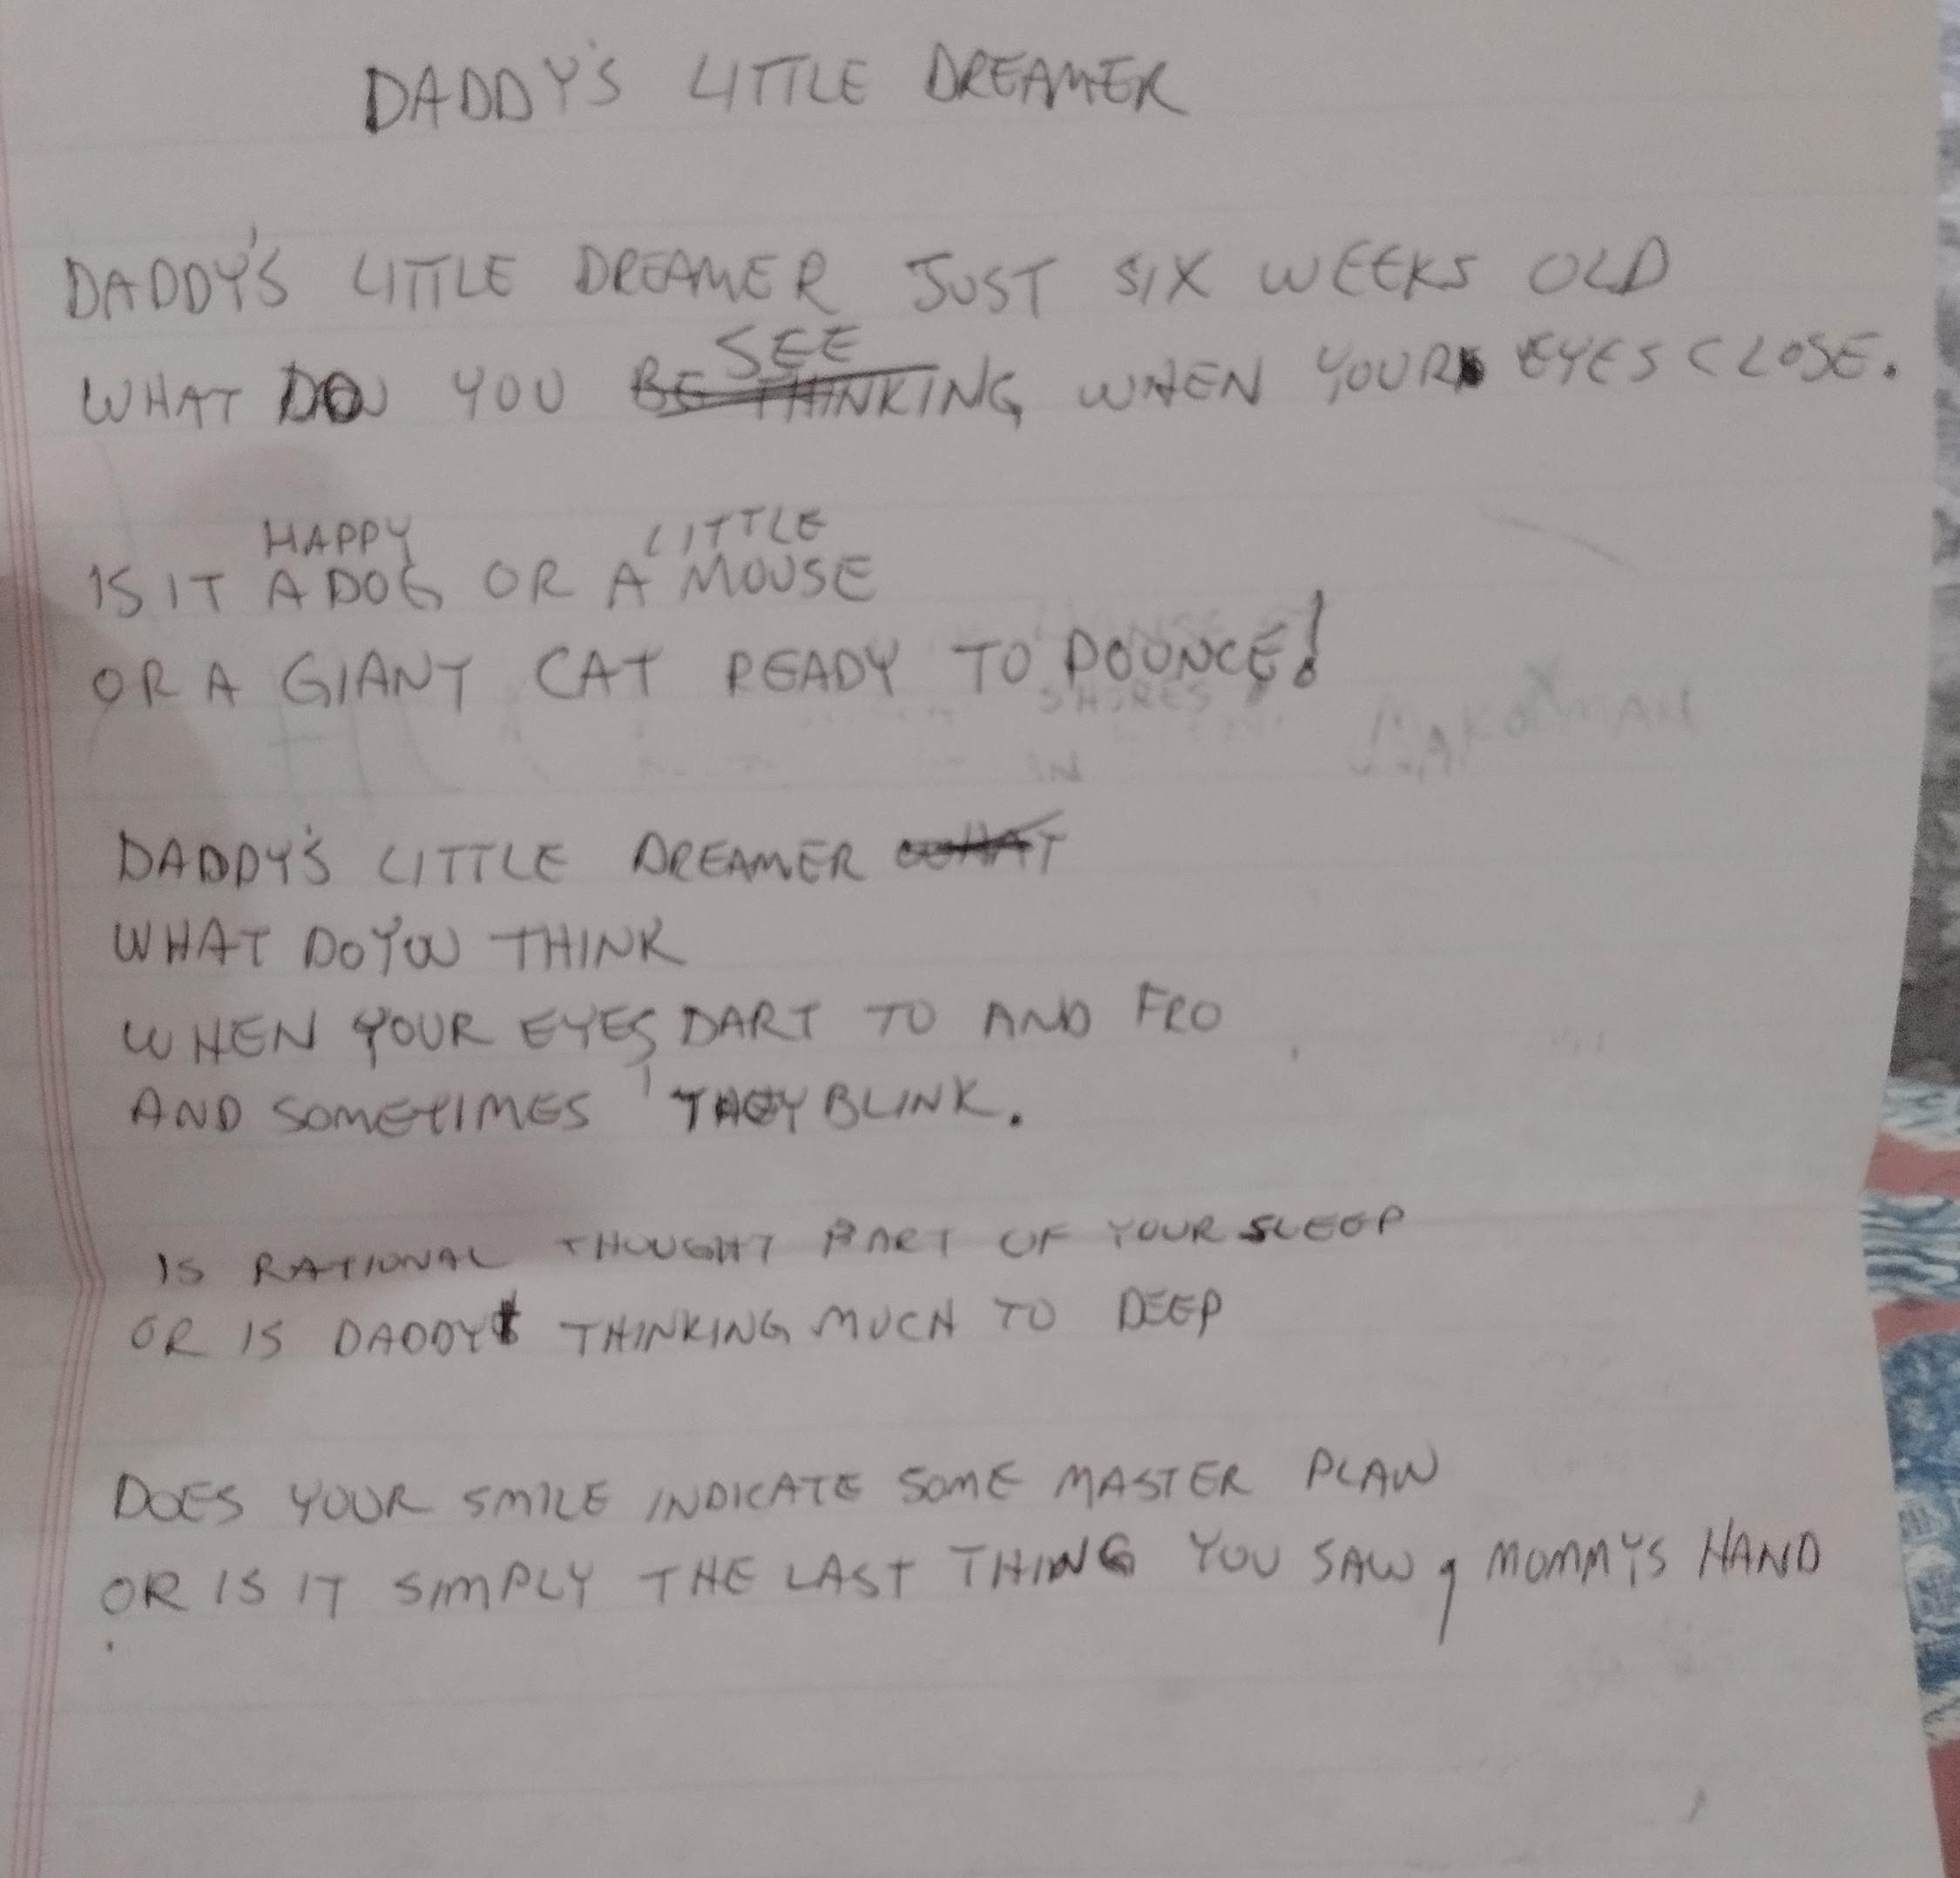 DADDY'S LITTLE DREAMER
DADDY'S LITTLE DREAMER JUST SIX WEEKS OLD
SEE
WHAT DO YOU BE THINKING WHEN YOUR EYES CLOSE.
HAPPY LITTLE
IS IT A DOG OR A MOUSE
OR A GIANT CAT READY TO POUNCE!
DADDY'S LITTLE DREAMER WHAT
WHAT DO YOU THINK
WHEN YOUR EYES DART TO AND FRO
AND SOMETIMES THEY BLINK.
IS RATIONAL THOUGHT PART OF YOUR SLEEP
OR IS DADDY THINKING MUCH TO DEEP
DOES YOUR SMILE INDICATE SOME MASTER PLAN
OR IS IT SIMPLY THE LAST THING YOU SAW, MOMMYS HAND